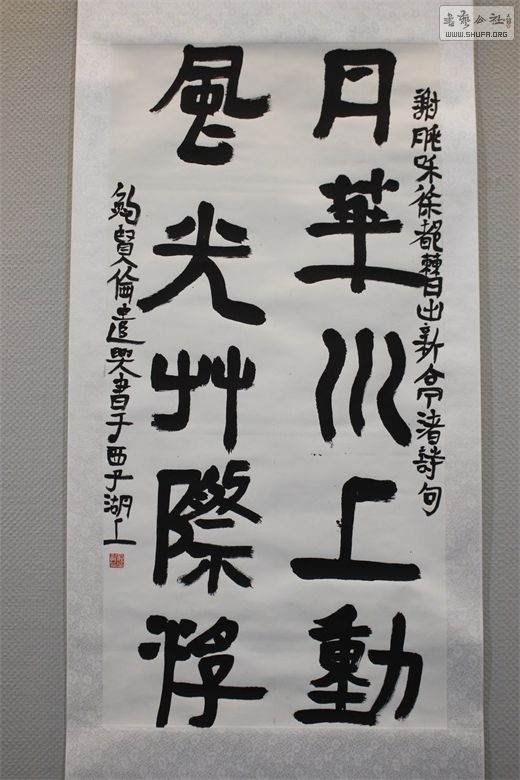 書藝公社
WWW.SHUFA.ORG
謝朓咊徐都曹出新亭渚詩句
日華川上動
風光艸際浮
鮑賢倫遣興書于西子湖上